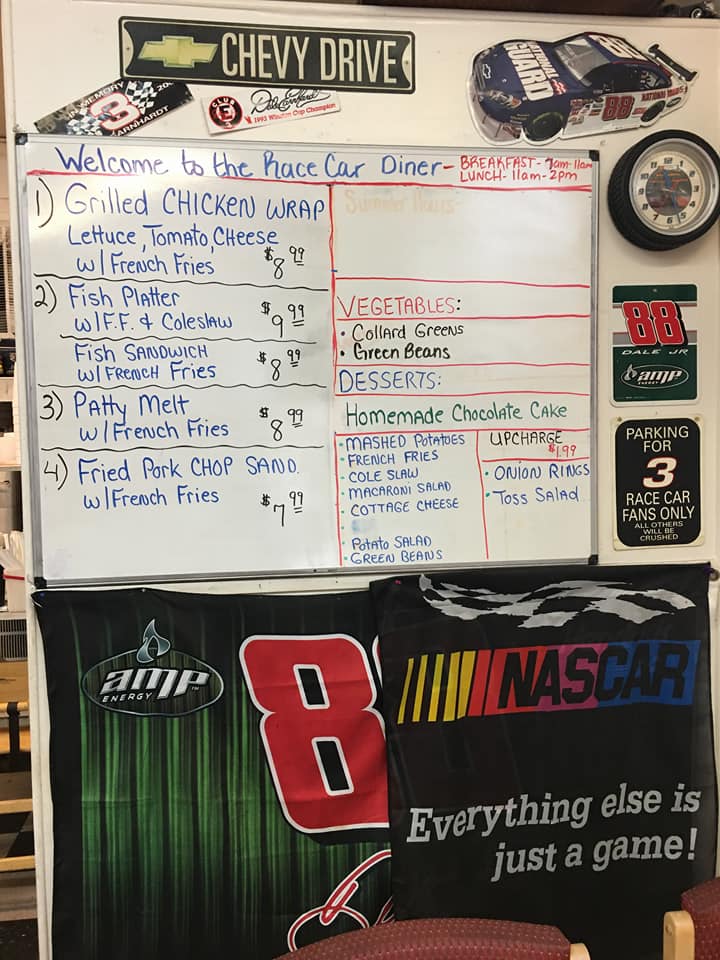 CHEVY DRIVE
IN MEMORY
3
EARNHARDT
CLUB
E
Dale Earnhardt
1993 Winston Cup Champion
NATIONAL GUARD
88
88
Welcome to the Race Car Diner-
BREAKFAST- 7am-11am
LUNCH- 11am-2pm
1) Grilled CHICKEN WRAP
Lettuce, Tomato, Cheese
w/French Fries $8.99
2) Fish Platter
w/F.F. & Coleslaw $9.99
Fish SANDWICH
w/ FRENCH Fries $8.99
3) Patty Melt
w/French Fries $8.99
4) Fried Pork CHOP SAND.
w/French Fries $7.99
Summer Hours-
VEGETABLES:
• Collard Greens
• Green Beans
DESSERTS:
Homemade Chocolate Cake
• MASHED POTATOES
• FRENCH FRIES
• COLE SLAW
• MACARONI SALAD
• COTTAGE CHEESE
• Potato SALAD
• GREEN BEANS
UPCHARGE
$1.99
• ONION RINGS
• Toss Salad
88
DALE JR
amp
ENERGY
PARKING
FOR
3
RACE CAR
FANS ONLY
ALL OTHERS
WILL BE
CRUSHED
amp
ENERGY
8
NASCAR
Everything else is
just a game!